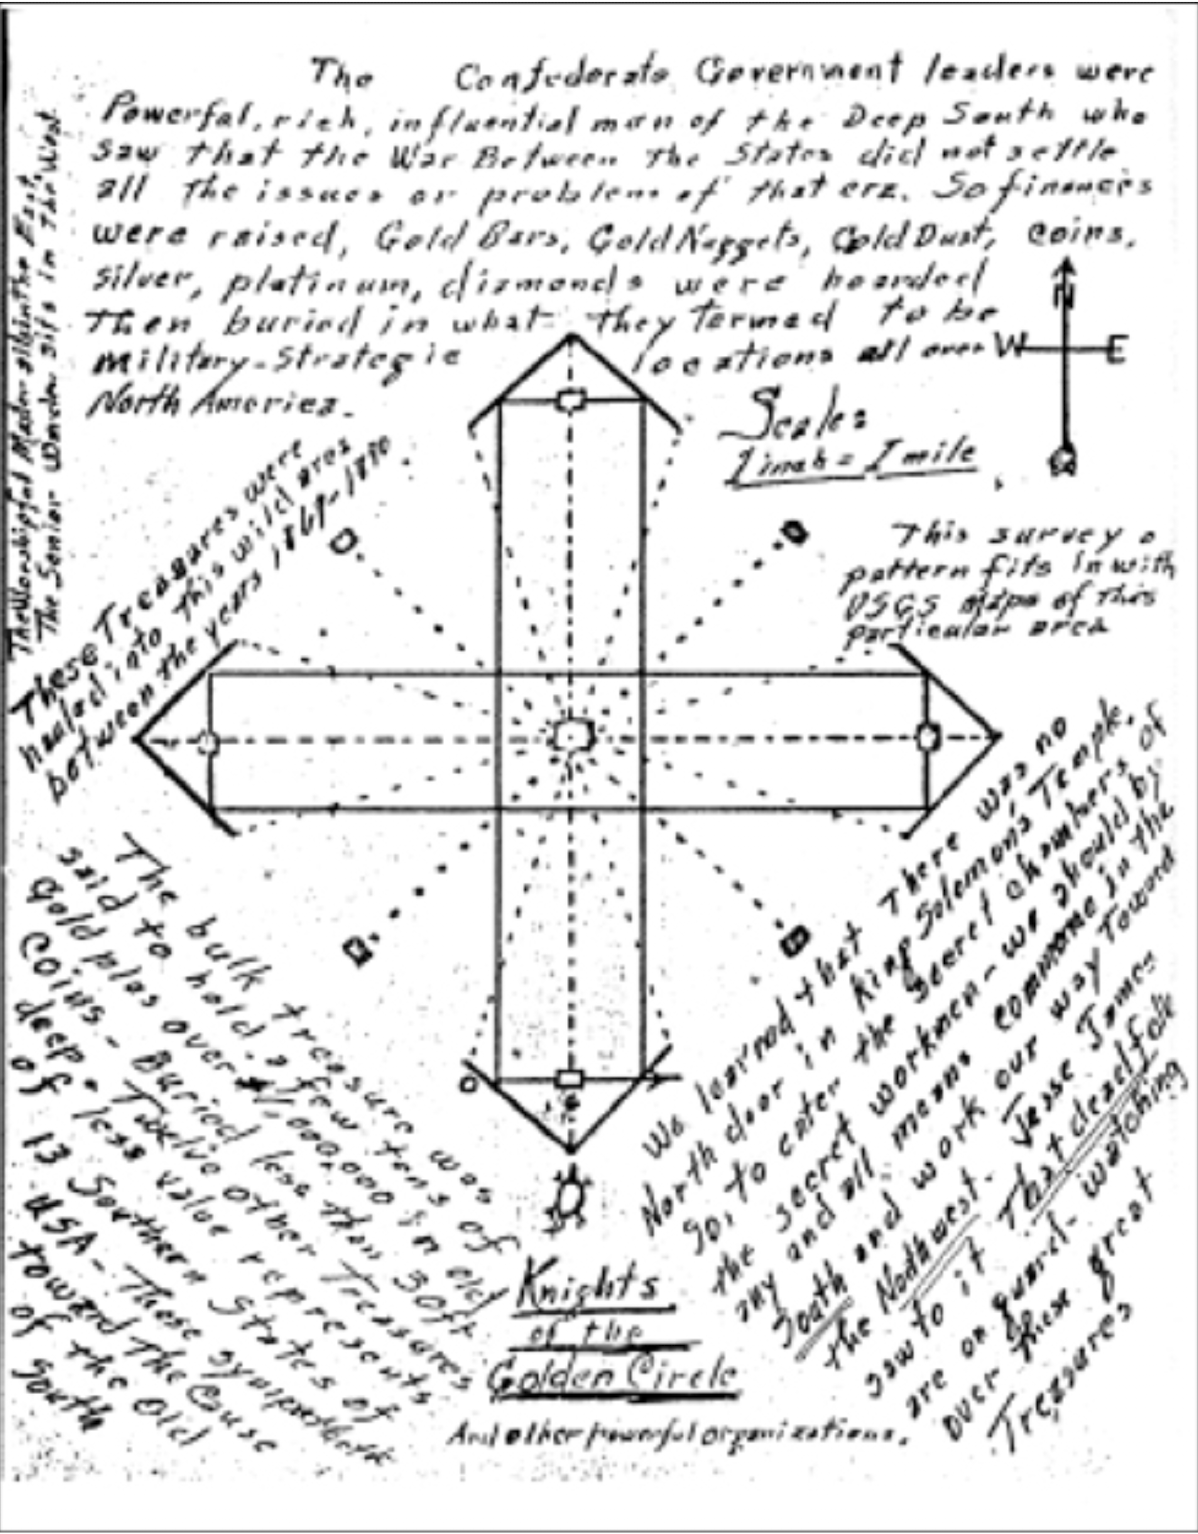 The Confederate Government leaders were
Powerful, rich, influential men of the Deep South who
saw that the War Between The States did not settle
all The issues or problems of that era. So finances
were raised, Gold Bars, Gold Nuggets, Gold Dust, coins,
silver, platinum, diamonds were hoarded
Then buried in what they termed to be
Military-Strategic locations all over
North America.
W E
N
Scale:
1 inch = 1 mile
The Worshipful Master sits in the East,
The Senior Warden sits in The West
These Treasures were
hauled into this wild area
between the years 1869-1890
This survey
pattern fits in with
USGS maps of this
particular area
The bulk treasure was
said to hold a few tens of
Gold plus over 000,000 in old
Coins - Buried less than 30ft
deep. Twelve other Treasures
of less value represents
13 Southern States of
USA - These
toward The Cause
of the Old
South
We learned that There was no
North door in King Solomon's Temple.
So, to enter the secret chambers of
the secret workmen - we should by
any and all means commence in the
South and work our way Toward
the Northwest. Jesse James
saw to it That
are on guard - watching
over these great
Treasures
Knights
of the
Golden Circle
And other powerful organizations.